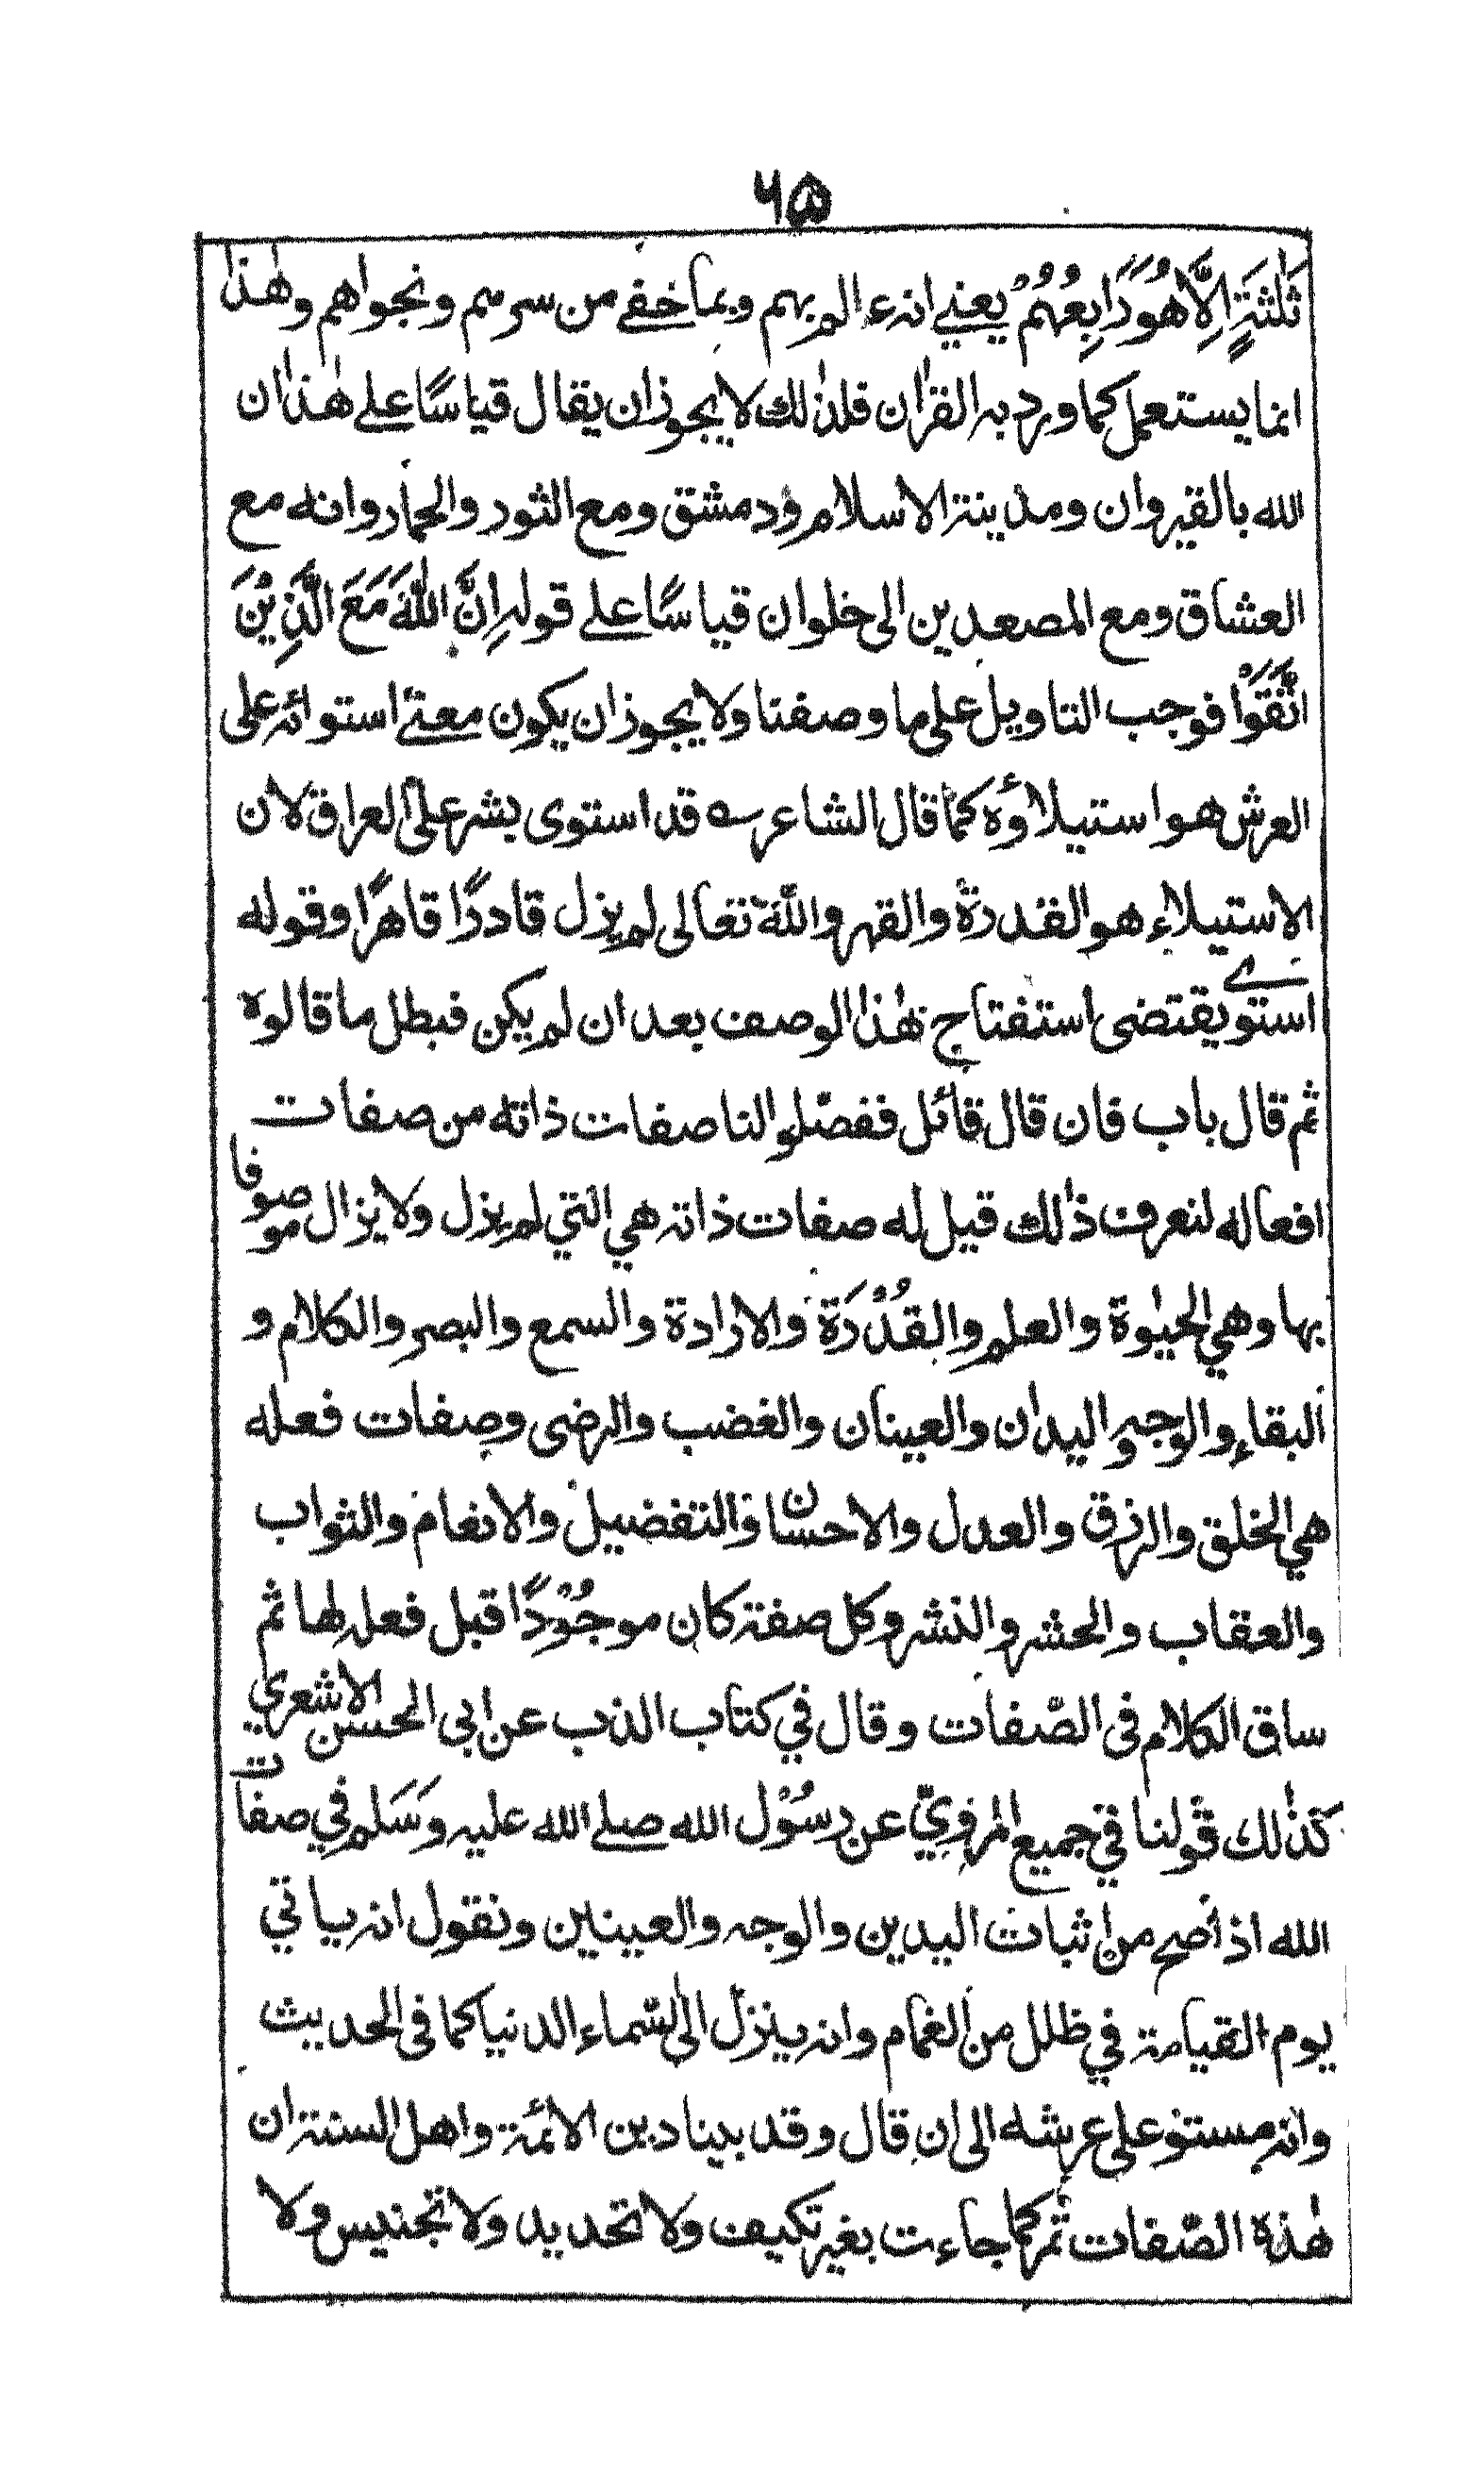 ۶۵
ثَلٰثَةٍ اِلَّا هُوَ رَابِعُهُمْ يعني انه عالم بهم وبما خفے من سرهم ونجواهم وهٰذا
انما يستعمل كما ورد به القراٰن فلذٰلك لا يجوز ان يقال قياسًا علے هٰذا ان
الله بالقيروان ومدينة الاسلام ودمشق ومع الثور والحمار وانه مع
العشاق ومع المصعدين الى خلوان قياسًا علے قوله اِنَّ اللّٰهَ مَعَ الَّذِيْنَ
اتَّقَوْا فوجب التاويل على ما وصفنا ولا يجوز ان يكون معنے استوائه على
العرش هو استيلاؤه كما قال الشاعر ؎ قد استوى بشر على العراق لان
الاستيلاء هو القدرة والقهر والله تعالى لم يزل قادرًا قاهرًا وقوله
استوے يقتضى استفتاح هٰذا الوصف بعد ان لم يكن فبطل ما قالوه
ثم قال باب فان قال قائل ففصّلوا لنا صفات ذاته من صفات
افعاله لنعرف ذٰلك قيل له صفات ذاته هي التي لم يزل ولا يزال موصوفا
بها وهي الحيٰوة والعلم والقُدْرَة والارادة والسمع والبصر والكلام و
البقاء والوجه واليدان والعينان والغضب والرضى وصفات فعله
هي الخلق والرزق والعدل والاحسان والتفضيل والانعام والثواب
والعقاب والحشر والنشر وكل صفة كان موجُوْدًا قبل فعله لها ثم
ساق الكلام فى الصّفات وقال في كتاب الذب عن ابى الحسن الاشعري
كذٰلك قولنا في جميع المروِيّ عن رسُوْل الله صلے الله عليه وَسَلم في صفات
الله اذ اصح من اثبات اليدين والوجه والعينين ونقول انه ياتي
يوم القيامة في ظلل من الغمام وانه ينزل الى السّماء الدنيا كما فى الحديث
وانه مستو على عرشه الى ان قال وقد بينا دين الائمة واهل السنة ان
هٰذه الصّفات تمر كما جاءت بغير تكيف ولا تحديد ولا تجنيس ولا